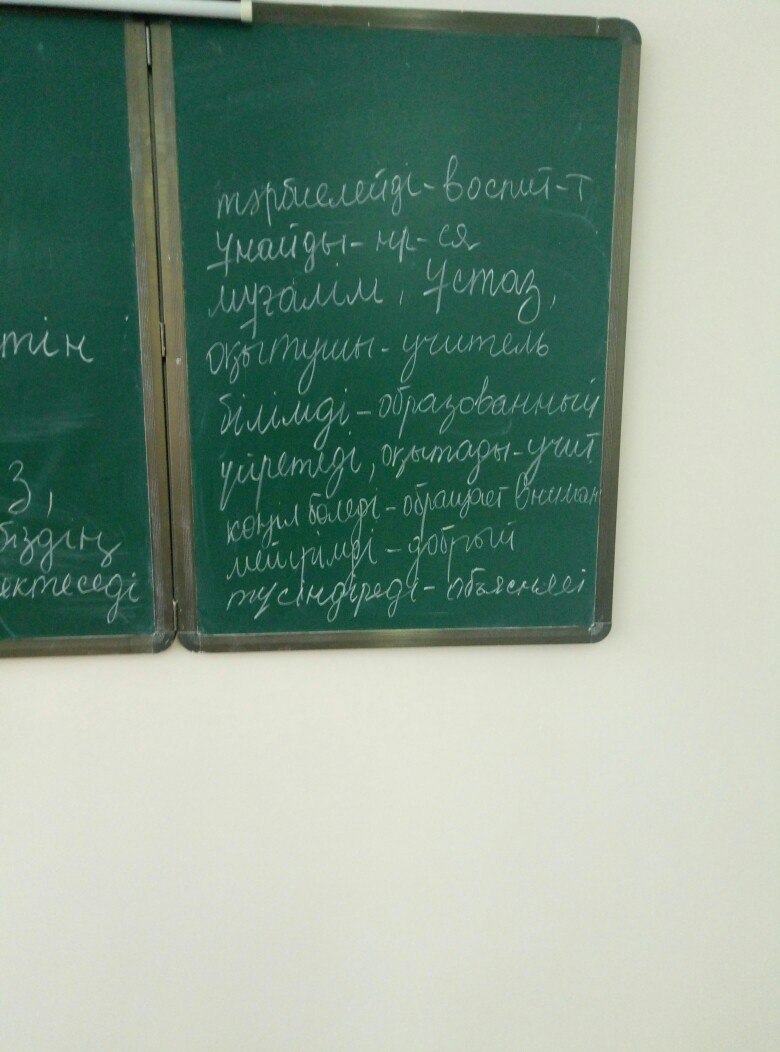 тін
з,
біздің
ектеседі
тәрбиелейді - воспит-т
ұнайды - нр-ся
мұғалім, ұстаз,
оқытушы - учитель
білімді - образованный
үйретеді, оқытады - учит
көңіл бөледі - обращает вниман
мейірімді - добрый
түсіндіреді - объясняет